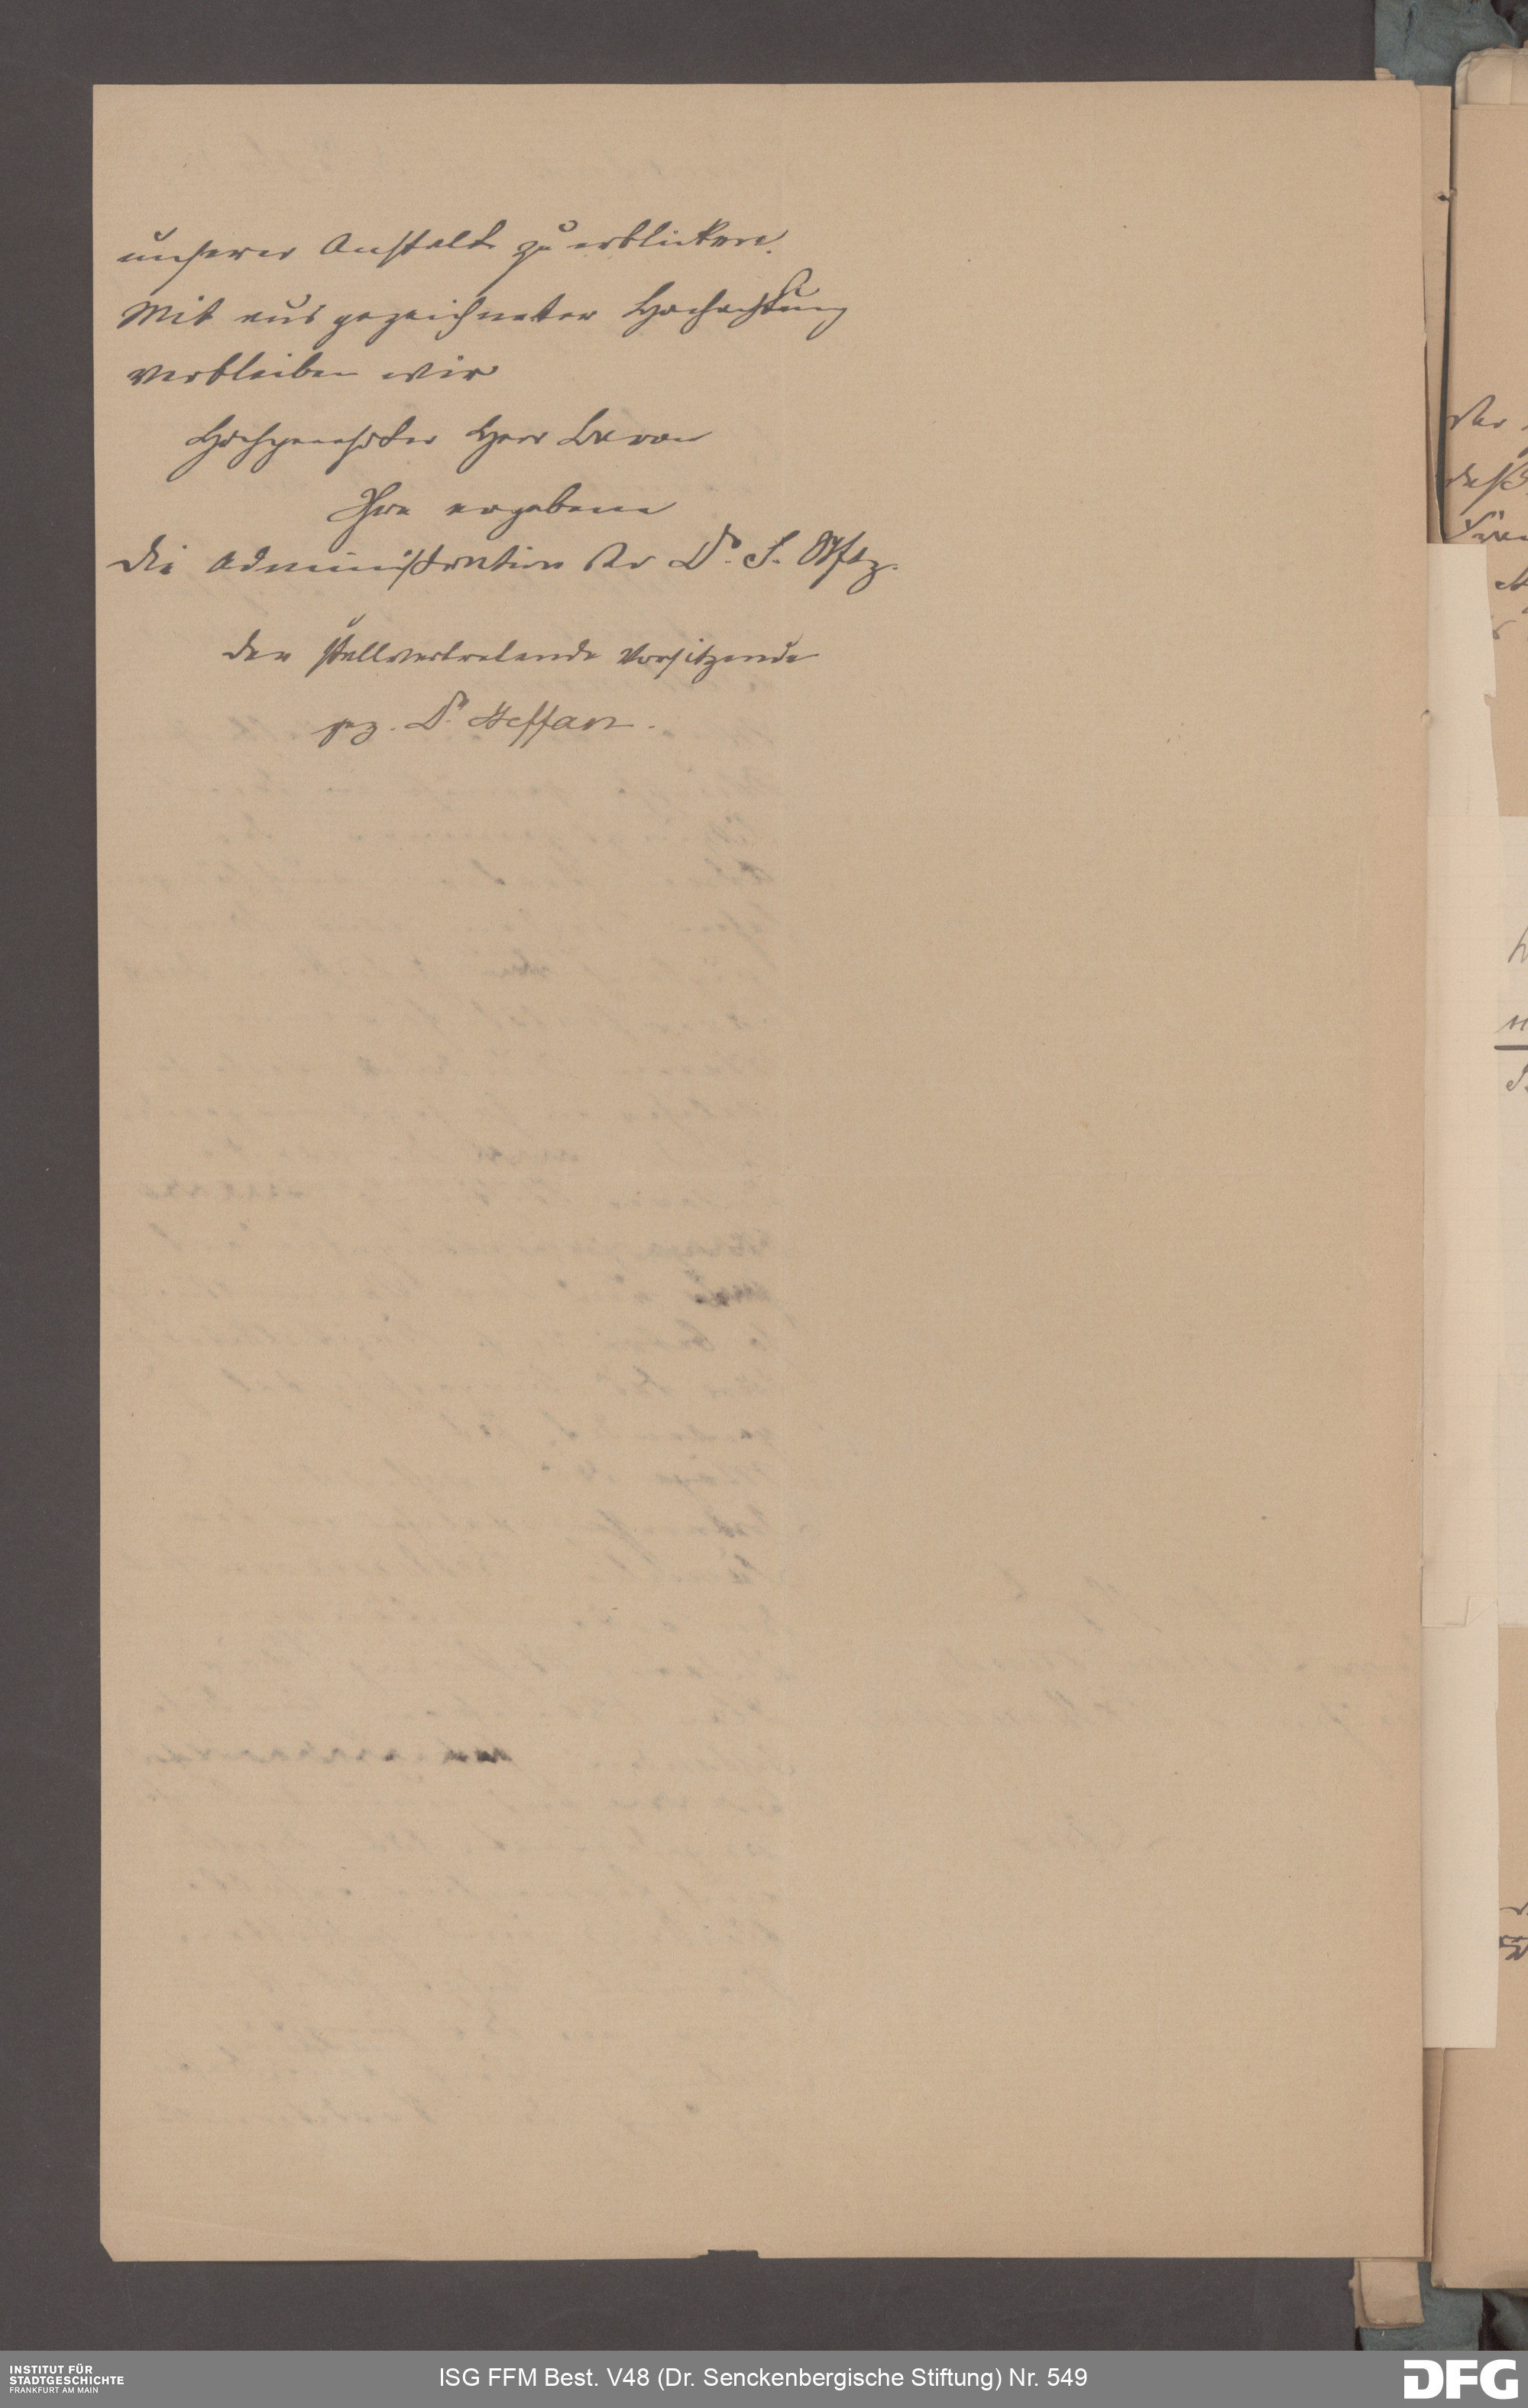 unserer Anstalt zu erblicken.
Mit ausgezeichneter Hochachtung
verbleiben wir
Hochgeehrter Herr Baron
Ihre ergebene
Die Administration der Dr. S. Stftg.
Der stellvertretende Vorsitzende
gez. Dr. Steffan.
INSTITUT FÜR
STADTGESCHICHTE
FRANKFURT AM MAIN
ISG FFM Best. V48 (Dr. Senckenbergische Stiftung) Nr. 549
DFG